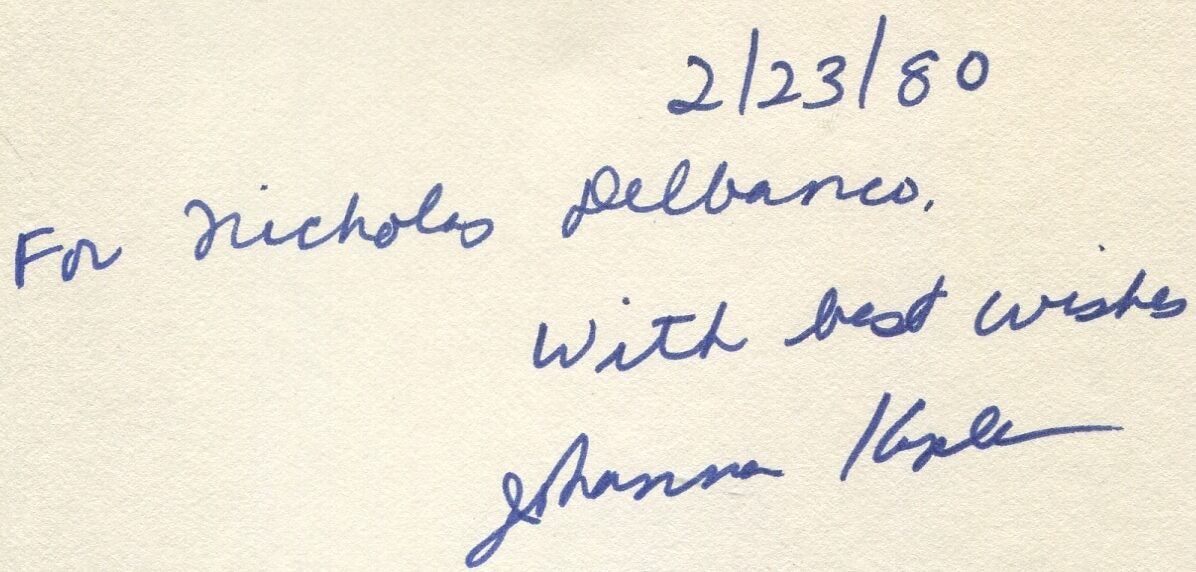 2/23/80
For Nicholas Delbanco.
With best wishes
Johanna Kaplan